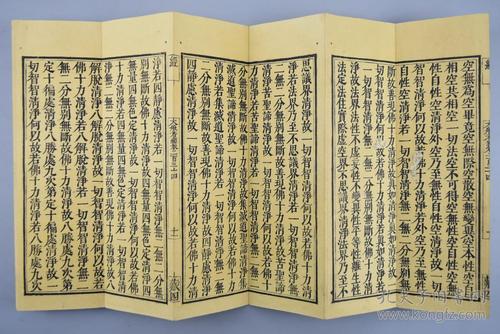 空無為空畢竟空無際空散空無變異空本性空自
相空共相空一切法空不可得空無性空自性空無性
自性空清淨外空乃至無性自性空清淨故一切智
智清淨何以故若佛十力清淨若外空乃至無性自
性空清淨若一切智智清淨無二無二分無別無
斷故善現佛十力清淨故真如清淨真如清淨故
一切智智清淨何以故若佛十力清淨若真如清
淨若一切智智清淨無二無二分無別無斷故佛
十力清淨故法界法性不虛妄性不變異性平等性離生性
法定法住實際虛空界不思議界清淨法界乃至不
思議界清淨故一切智智清淨何以故若佛十力清
淨若法界乃至不思議界清淨若一切智智清淨無
二無二分無別無斷故善現佛十力清淨故苦聖諦
清淨苦聖諦清淨故一切智智清淨何以故若佛十
力清淨若苦聖諦清淨若一切智智清淨無二無二
分無別無斷故佛十力清淨故集滅道聖諦清淨集
滅道聖諦清淨故一切智智清淨何以故若佛十力
清淨若集滅道聖諦清淨若一切智智清淨無二無
二分無別無斷故善現佛十力清淨故四靜慮清淨
四靜慮清淨故一切智智清淨何以故若佛十力清
淨若四靜慮清淨若一切智智清淨無二無二分無
別無斷故佛十力清淨故四無量四無色定清淨四
無量四無色定清淨故一切智智清淨何以故若佛
十力清淨若四無量四無色定清淨若一切智智清
淨無二無二分無別無斷故善現佛十力清淨故八
解脫清淨八解脫清淨故一切智智清淨何以故若
佛十力清淨若八解脫清淨若一切智智清淨無二
無二分無別無斷故佛十力清淨故八勝處九次第
定十遍處清淨八勝處九次第定十遍處清淨故一
切智智清淨何以故若佛十力清淨若八勝處九次
孔夫子旧书网
www.kongfz.com